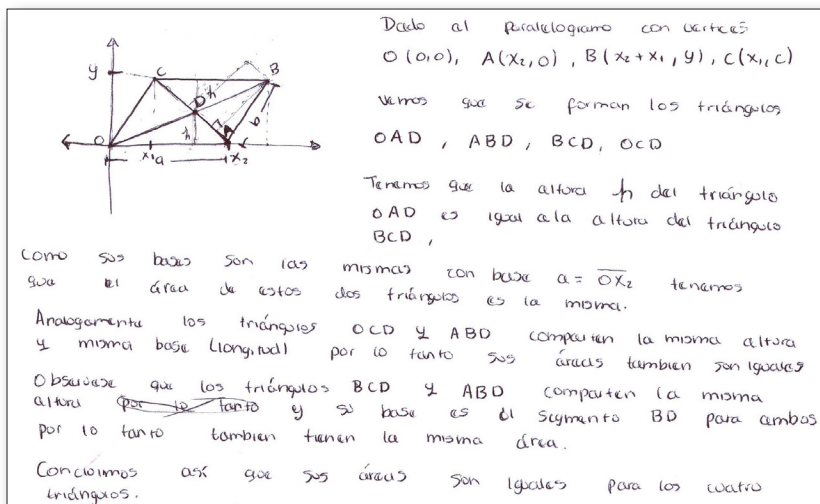 Dado al paralelogramo con vertices
O(0,0), A(x₂,0), B(x₂+x₁,y), C(x₁,c)
Vemos que se forman los triángulos
OAD, ABD, BCD, OCD
Tenemos que la altura h del triángulo
OAD es igual a la altura del triángulo
BCD,
como sus bases son las mismas con base a = OX₂ tenemos
que el área de estos dos triángulos es la misma.
Analogamente los triángulos OCD y ABD comparten la misma altura
y misma base (longitud) por lo tanto sus áreas tambien son iguales
Observese que los triángulos BCD y ABD comparten la misma
altura por lo tanto y su base es el segmento BD para ambos
por lo tanto tambien tienen la misma área.
Concluimos así que sus áreas son iguales para los cuatro
triángulos.
y
C
B
D
h
h
b
O
A
x₁
a
x₂